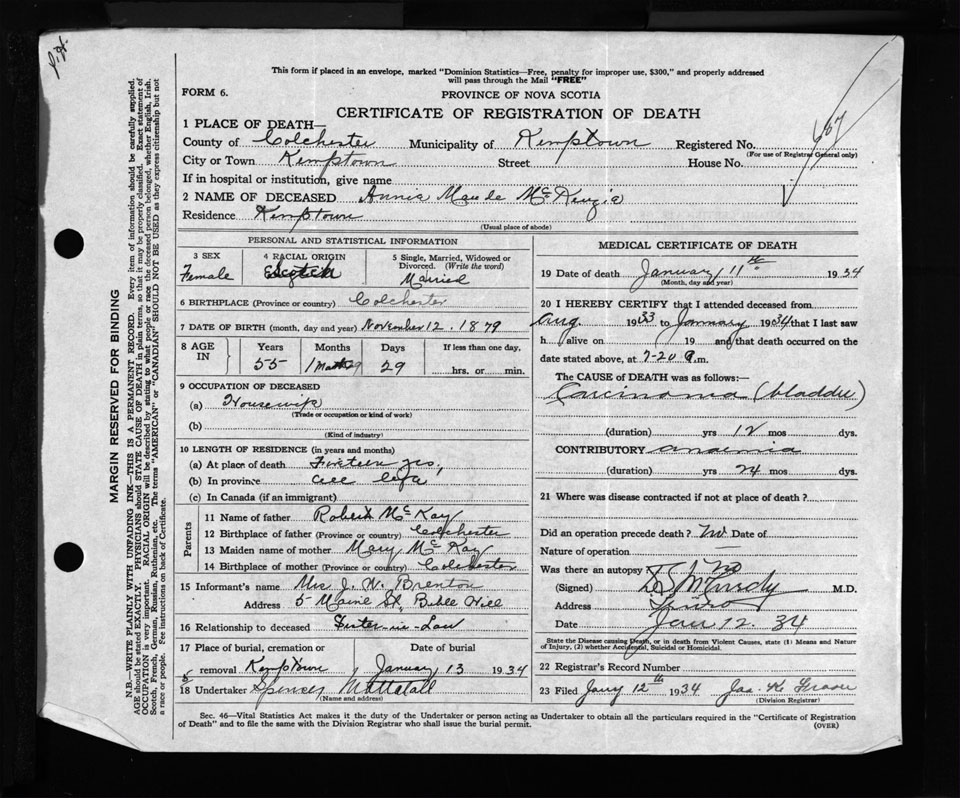 P.H.
This form if placed in an envelope, marked "Dominion Statistics—Free, penalty for improper use, $300," and properly addressed
will pass through the Mail "FREE"
FORM 6.
PROVINCE OF NOVA SCOTIA
CERTIFICATE OF REGISTRATION OF DEATH
667
1 PLACE OF DEATH—
County of Colchester Municipality of Kemptown Registered No.
(For use of Registrar General only)
City or Town Kemptown Street House No.
If in hospital or institution, give name
2 NAME OF DECEASED Annie Maude McKenzie
Residence Kemptown
(Usual place of abode)
PERSONAL AND STATISTICAL INFORMATION
3 SEX 4 RACIAL ORIGIN 5 Single, Married, Widowed or Divorced. (Write the word)
Female Scotch Married
6 BIRTHPLACE (Province or country) Colchester
7 DATE OF BIRTH (month, day and year) November 12. 1879
8 AGE IN Years Months Days If less than one day,
55 1 29 hrs. or min.
9 OCCUPATION OF DECEASED
(a) Housewife
(Trade or occupation or kind of work)
(b)
(Kind of industry)
10 LENGTH OF RESIDENCE (in years and months)
(a) At place of death yrs,
(b) In province all life
(c) In Canada (if an immigrant)
Parents
11 Name of father Robert McKay
12 Birthplace of father (Province or country) Colchester
13 Maiden name of mother Mary McKay
14 Birthplace of mother (Province or country) Colchester
15 Informant's name Mrs J. W. Brenton
Address 5 St, Bible Hill
16 Relationship to deceased Sister-in-Law
17 Place of burial, cremation or Date of burial
removal Kemptown January 13 1934
18 Undertaker Spencer Mattatall
(Name and address)
MEDICAL CERTIFICATE OF DEATH
19 Date of death January 11th 1934
(Month, day and year)
20 I HEREBY CERTIFY that I attended deceased from
Aug. 1933 to January 1934 that I last saw
h alive on 19 and that death occurred on the
date stated above, at 7-20 a.m.
The CAUSE OF DEATH was as follows:—
Carcinoma (bladder)
(duration) yrs 12 mos dys.
CONTRIBUTORY anaemia
(duration) yrs 24 mos dys.
21 Where was disease contracted if not at place of death?
Did an operation precede death? No Date of
Nature of operation —
Was there an autopsy? No
(Signed) McCurdy M.D.
Address Truro
Date Jan 12. 34
State the Disease causing Death, or in death from Violent Causes, state (1) Means and Nature
of Injury, (2) whether Accidental, Suicidal or Homicidal.
22 Registrar's Record Number
23 Filed Jany 12th 1934 Jas. K.
(Division Registrar)
Sec. 46—Vital Statistics Act makes it the duty of the Undertaker or person acting as Undertaker to obtain all the particulars required in the "Certificate of Registration
of Death" and to file the same with the Division Registrar who shall issue the burial permit.
(OVER)
MARGIN RESERVED FOR BINDING
N.B.—WRITE PLAINLY WITH UNFADING INK—THIS IS A PERMANENT RECORD. Every item of information should be carefully supplied.
AGE should be stated EXACTLY. PHYSICIANS should STATE CAUSE OF DEATH in plain terms, so that it may be properly classified. Exact statement of
OCCUPATION is very important. RACIAL ORIGIN will be described by stating to what people or race the deceased person belonged, whether English, Irish,
Scotch, French, German, Russian, Ruthenian, etc. The terms "AMERICAN" or "CANADIAN" SHOULD NOT BE USED as they express citizenship but not
a race or people. Fee instructions on back of Certificate.